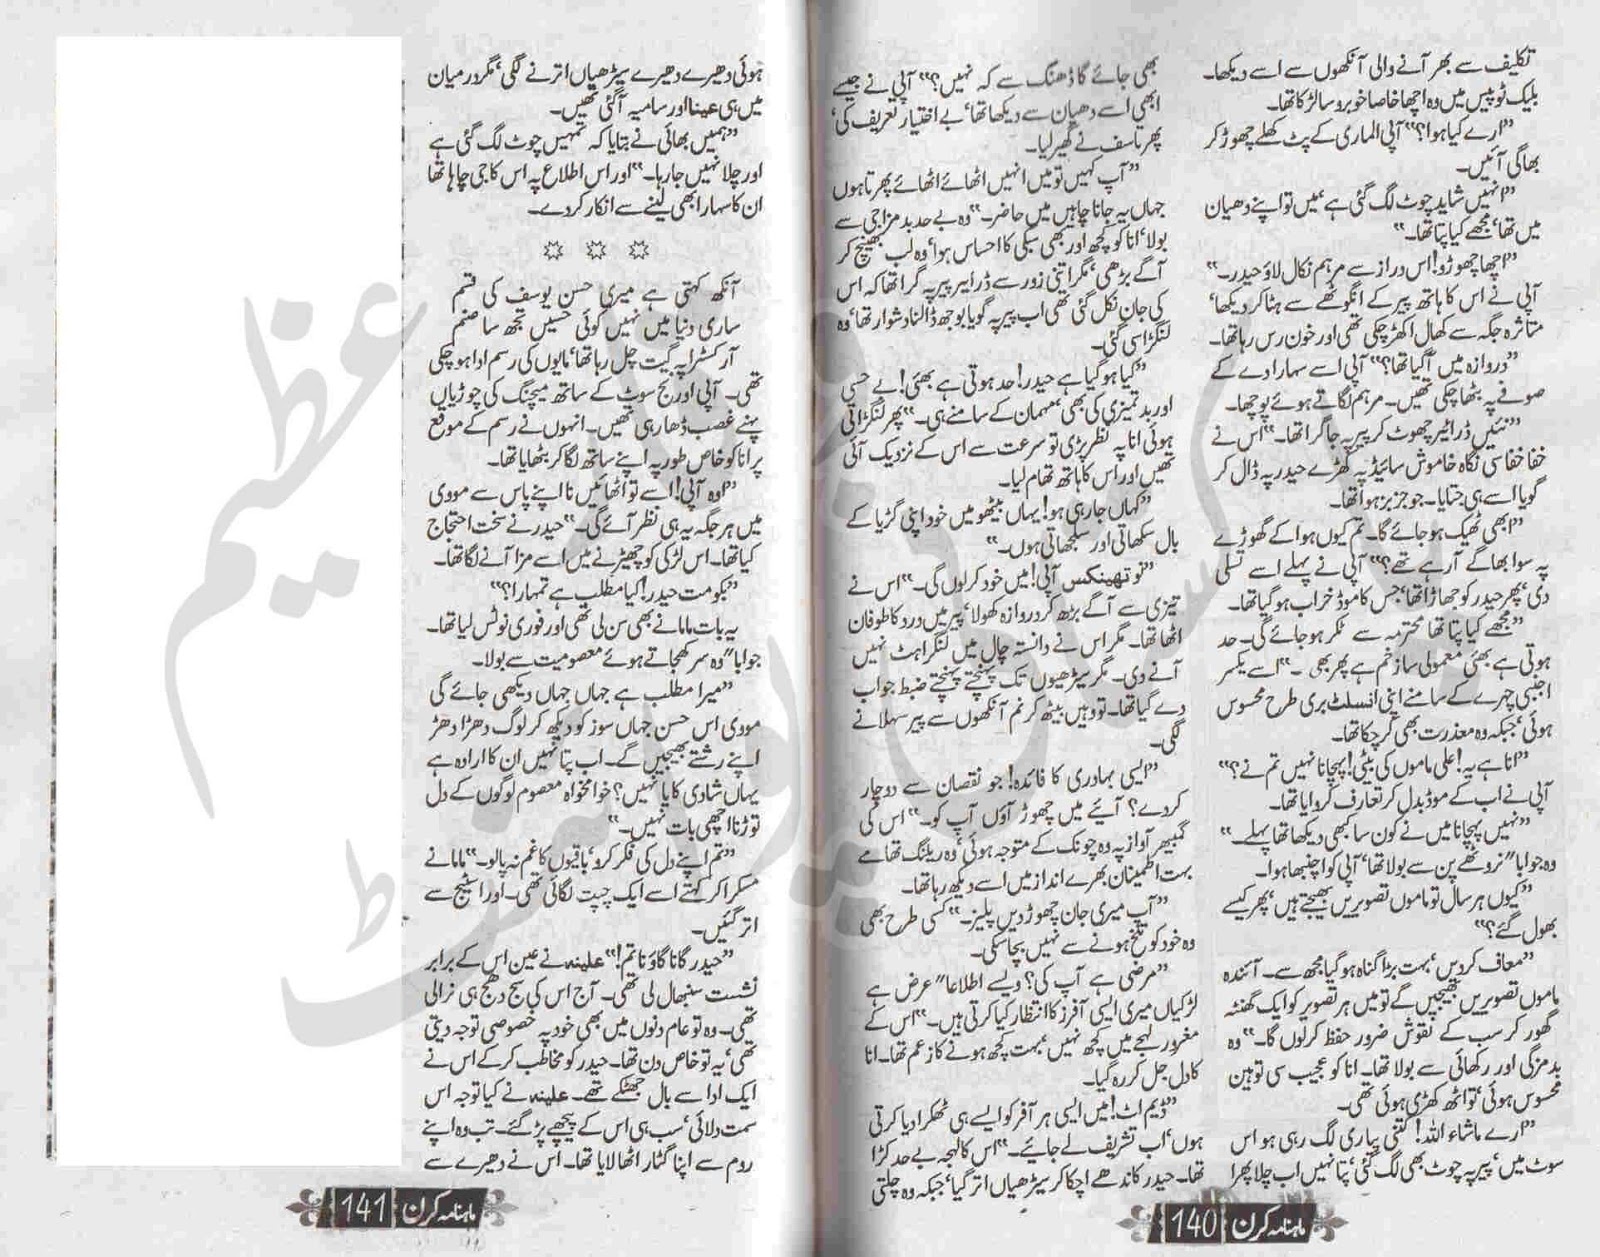 تکلیف سے بھر آنے والی آنکھوں سے اسے دیکھا۔
بلیک ٹو پیس میں وہ اچھا خاصا خوبرو سا لڑکا تھا۔
”ارے کیا ہوا؟“ آپی الماری کے پٹ کھلے چھوڑ کر
بھاگی آئیں۔
”انہیں شاید چوٹ لگ گئی ہے‘ میں تو اپنے دھیان
میں تھا‘ مجھے کیا پتا تھا۔“
”اچھا چھوڑو! اس دراز سے مرہم نکال لاؤ حیدر۔“
آپی نے اس کا ہاتھ پیر کے انگوٹھے سے ہٹا کر دیکھا‘
متاثرہ جگہ سے کھال اکھڑ چکی تھی اور خون رس رہا تھا۔
”دروازہ میں آگیا تھا؟“ آپی اسے سہارا دے کے
صوفے پہ بٹھا چکی تھیں۔ مرہم لگاتے ہوئے پوچھا۔
”نئیں ڈرائیر چھوٹ کر پیر پہ جا گرا تھا۔“ اس نے
خفا خفا سی نگاہ خاموش سائیڈ پہ کھڑے حیدر پہ ڈال کر
گویا اسے ہی جتایا۔ جو جز بز ہوا تھا۔
”ابھی ٹھیک ہو جائے گا۔ تم کیوں ہوا کے گھوڑے
پہ سوار بھاگے آرہے تھے؟“ آپی نے پہلے اسے تسلی
دی‘ پھر حیدر کو جھاڑا تھا‘ جس کا موڈ خراب ہو گیا تھا۔
”مجھے کیا پتا تھا محترمہ سے ٹکر ہو جائے گی۔ حد
ہوتی ہے بھئی‘ معمولی سا زخم ہے پھر بھی۔“ اسے یکسر
اجنبی چہرے کے سامنے اپنی انسلٹ بری طرح محسوس
ہوئی‘ جبکہ وہ معذرت بھی کر چکا تھا۔
”انا ہے یہ! علی ماموں کی بیٹی! پہچانا نہیں تم نے؟“
آپی نے اب کے موڈ بدل کر تعارف کروایا تھا۔
”نہیں پہچانا میں نے کون سا کبھی دیکھا تھا پہلے۔“
وہ جواباً“ نروٹھے پن سے بولا تھا‘ آپی کو اچنبھا ہوا۔
”کیوں ہر سال تو ماموں تصویریں بھیجتے ہیں‘ پھر کیسے
بھول گئے؟“
”معاف کر دیں‘ بہت بڑا گناہ ہو گیا مجھ سے۔ آئندہ
ماموں تصویریں بھیجیں گے تو میں ہر تصویر کو ایک گھنٹہ
گھور کر سب کے نقوش ضرور حفظ کر لوں گا۔“ وہ
بدمزگی اور رکھائی سے بولا تھا۔ انا کو عجیب سی توہین
محسوس ہوئی‘ تو اٹھ کھڑی ہوئی تھی۔
”ارے ماشاء اللہ! کتنی پیاری لگ رہی ہو اس
سوٹ میں‘ پیر پہ چوٹ بھی لگ گئی‘ پتا نہیں اب چلا پھرا
ماہنامہ کرن 140
بھی جائے گا ڈھنگ سے کہ نہیں؟“ آپی نے جیسے
ابھی اسے دھیان سے دیکھا تھا‘ بے اختیار تعریف کی‘
پھر تاسف نے گھیر لیا۔
”آپ کہیں تو میں انہیں اٹھائے اٹھائے پھرتا ہوں
جہاں یہ جانا چاہیں میں حاضر۔“ وہ بے حد بدمزاجی سے
بولا‘ انا کو کچھ اور بھی سبکی کا احساس ہوا‘ وہ لب بھینچ کر
آگے بڑھی‘ مگر اتنی زور سے ڈرائیر پیر پہ گرا تھا کہ اس
کی جان نکل گئی تھی اب پیر پہ گویا بوجھ ڈالنا دشوار تھا‘ وہ
لنگڑا سی گئی۔
”کیا ہو گیا ہے حیدر! حد ہوتی ہے بھئی! بے حسی
اور بدتمیزی کی بھی‘ مہمان کے سامنے ہی۔“ پھر لنگڑاتی
ہوئی انا پہ نظر پڑی تو سرعت سے اس کے نزدیک آئی
تھیں اور اس کا ہاتھ تھام لیا۔
”کہاں جا رہی ہو! یہاں بیٹھو میں خود اپنی گڑیا کے
بال سکھاتی اور سلجھاتی ہوں۔“
”نو تھینکس آپی! میں خود کر لوں گی۔“ اس نے
تیزی سے آگے بڑھ کر دروازہ کھولا‘ پیر میں درد کا طوفان
اٹھا تھا۔ مگر اس نے دانستہ چال میں لنگراہٹ نہیں
آنے دی۔ مگر سیڑھیوں تک پہنچتے پہنچتے ضبط جواب
دے گیا تھا۔ تو وہیں بیٹھ کر نم آنکھوں سے پیر سہلانے
لگی۔
”ایسی بہادری کا فائدہ! جو نقصان سے دوچار
کردے؟ آیئے میں چھوڑ آؤں آپ کو۔“ اس کی
گمبھیر آواز پہ وہ چونک کے متوجہ ہوئی‘ وہ ریلنگ تھامے
بہت اطمینان بھرے انداز میں اسے دیکھ رہا تھا۔
”آپ میری جان چھوڑ دیں پلیز۔“ کسی طرح بھی
وہ خود کو تلخ ہونے سے نہیں بچا سکی۔
”مرضی ہے آپ کی؟ ویسے اطلاعاً“ عرض ہے
لڑکیاں میری ایسی آفرز کا انتظار کیا کرتی ہیں۔“ اس کے
مغرور لہجے میں کچھ نہیں‘ بہت کچھ ہونے کا زعم تھا۔ انا
کا دل جل کر رہ گیا۔
”ڈیم اٹ! میں ایسی ہر آفر کو ایسے ہی ٹھکرا دیا کرتی
ہوں‘ اب تشریف لے جائیے۔“ اس کا لہجہ بے حد کڑا
تھا۔ حیدر کاندھے اچکا کر سیڑھیاں اتر گیا‘ جبکہ وہ چلتی
ہوئی دھیرے دھیرے سیڑھیاں اترنے لگی‘ مگر درمیان
میں ہی عینا اور سامیہ آگئی تھیں۔
”ہمیں بھائی نے بتایا کہ تمہیں چوٹ لگ گئی ہے
اور چلا نہیں جا رہا۔“ اور اس اطلاع پہ اس کا جی چاہا تھا
ان کا سہارا بھی لینے سے انکار کردے۔
✡ ✡ ✡
آنکھ کہتی ہے میری حسن یوسف کی قسم
ساری دنیا میں نہیں کوئی حسیں تجھ سا صنم
آرکسٹرا پہ گیت چل رہا تھا‘ مایوں کی رسم ادا ہو چکی
تھی۔ آپی اورنج سوٹ کے ساتھ میچنگ کی چوڑیاں
پہنے غصب ڈھا رہی تھیں۔ انہوں نے رسم کے موقع
پر انا کو خاص طور پہ اپنے ساتھ لگا کر بٹھایا تھا۔
”اوہ آپی! اسے تو اٹھائیں نا اپنے پاس سے مووی
میں ہر جگہ یہ ہی نظر آئے گی۔“ حیدر نے سخت احتجاج
کیا تھا۔ اس لڑکی کو چھیڑنے میں اسے مزا آنے لگا تھا۔
”بکو مت حیدر! کیا مطلب ہے تمہارا؟“
یہ بات ماما نے بھی سن لی تھی اور فوری نوٹس لیا تھا۔
جواباً“ وہ سر کھجاتے ہوئے معصومیت سے بولا۔
”میرا مطلب ہے جہاں جہاں دیکھی جائے گی
مووی اس حسن جہاں سوز کو دیکھ کر لوگ دھڑا دھڑ
اپنے رشتے بھیجیں گے۔ اب پتا نہیں ان کا ارادہ ہے
یہاں شادی کا یا نہیں؟ خوامخواہ معصوم لوگوں کے دل
توڑنا اچھی بات نہیں۔“
”تم اپنے دل کی فکر کرو‘ باقیوں کا غم نہ پالو۔“ ماما نے
مسکرا کر کہتے اسے ایک چپت لگائی تھی۔ اور اسٹیج سے
اتر گئیں۔
”حیدر گانا گاؤ نا تم!“ علینہ نے عین اس کے برابر
نشست سنبھال لی تھی۔ آج اس کی سج دھج ہی نرالی
تھی۔ وہ تو عام دنوں میں بھی خود پہ خصوصی توجہ دیتی
تھی‘ یہ تو خاص دن تھا۔ حیدر کو مخاطب کرکے اس نے
ایک ادا سے بال جھٹکے تھے۔ علینہ نے کیا توجہ اس
سمت دلائی‘ سب ہی اس کے پیچھے پڑ گئے۔ تب وہ اپنے
روم سے اپنا گٹار اٹھا لایا تھا۔ اس نے دھیرے سے
ماہنامہ کرن 141